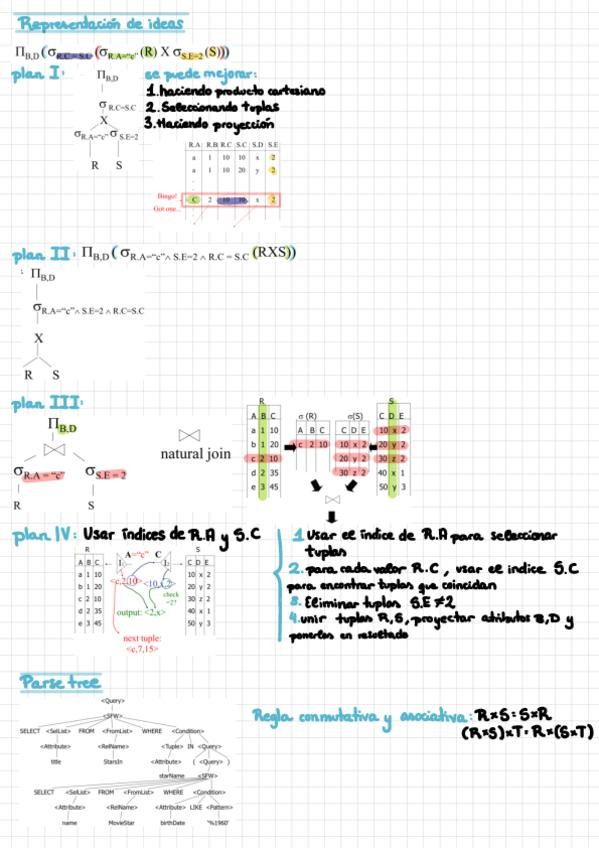 Representación de ideas
Π B,D (σ R.C = S.C (σ R.A="c" (R) X σ S.E=2 (S)))
plan I:
Π B,D
σ R.C=S.C
X
σ R.A="c" σ S.E=2
R S
se puede mejorar:
1. haciendo producto cartesiano
2. Seleccionando tuplas
3. Haciendo proyección
R.A R.B R.C S.C S.D S.E
a 1 10 10 x 2
a 1 10 20 y 2
Bingo!
Got one...
C 2 10 10 x 2
plan II: Π B,D (σ R.A="c" ∧ S.E=2 ∧ R.C = S.C (RXS))
Π B,D
σ R.A="c" ∧ S.E=2 ∧ R.C=S.C
X
R S
plan III:
Π B,D
⋈
σ R.A = "c" σ S.E = 2
R S
⋈
natural join
R
A B C
a 1 10
b 1 20
c 2 10
d 2 35
e 3 45
σ (R)
A B C
c 2 10
σ(S)
C D E
10 x 2
20 y 2
30 z 2
S
C D E
10 x 2
20 y 2
30 z 2
40 x 1
50 y 3
⋈
plan IV: Usar índices de R.A y S.C
R
A B C
a 1 10
b 1 20
c 2 10
d 2 35
e 3 45
A="c" C
<c,2,10> <10,x,2>
check
=2?
output: <2,x>
next tuple:
<c,7,15>
S
C D E
10 x 2
20 y 2
30 z 2
40 x 1
50 y 3
1. Usar el índice de R.A para seleccionar
tuplas
2. para cada valor R.C, usar el indice S.C
para encontrar tuplas que coincidan
3. Eliminar tuplas S.E ≠ 2
4. unir tuplas R,S, proyectar atributos B,D y
ponerlos en resultado
Parse tree
<Query>
<SFW>
SELECT <SelList> FROM <FromList> WHERE <Condition>
<Attribute> <RelName> <Tuple> IN <Query>
title StarsIn <Attribute> ( <Query> )
starName <SFW>
SELECT <SelList> FROM <FromList> WHERE <Condition>
<Attribute> <RelName> <Attribute> LIKE <Pattern>
name MovieStar birthDate '%1960'
Regla conmutativa y asociativa: R×S = S×R
(R×S)×T = R×(S×T)